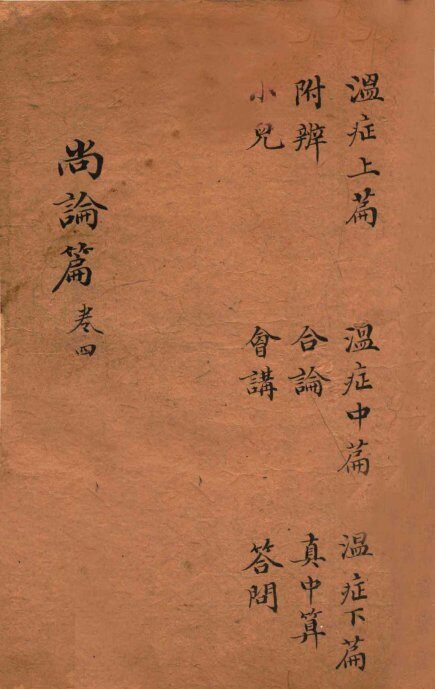 溫症上篇 溫症中篇 溫症下篇
附辨 合論 真中算
小兒 會講 答問
尚論篇 卷四